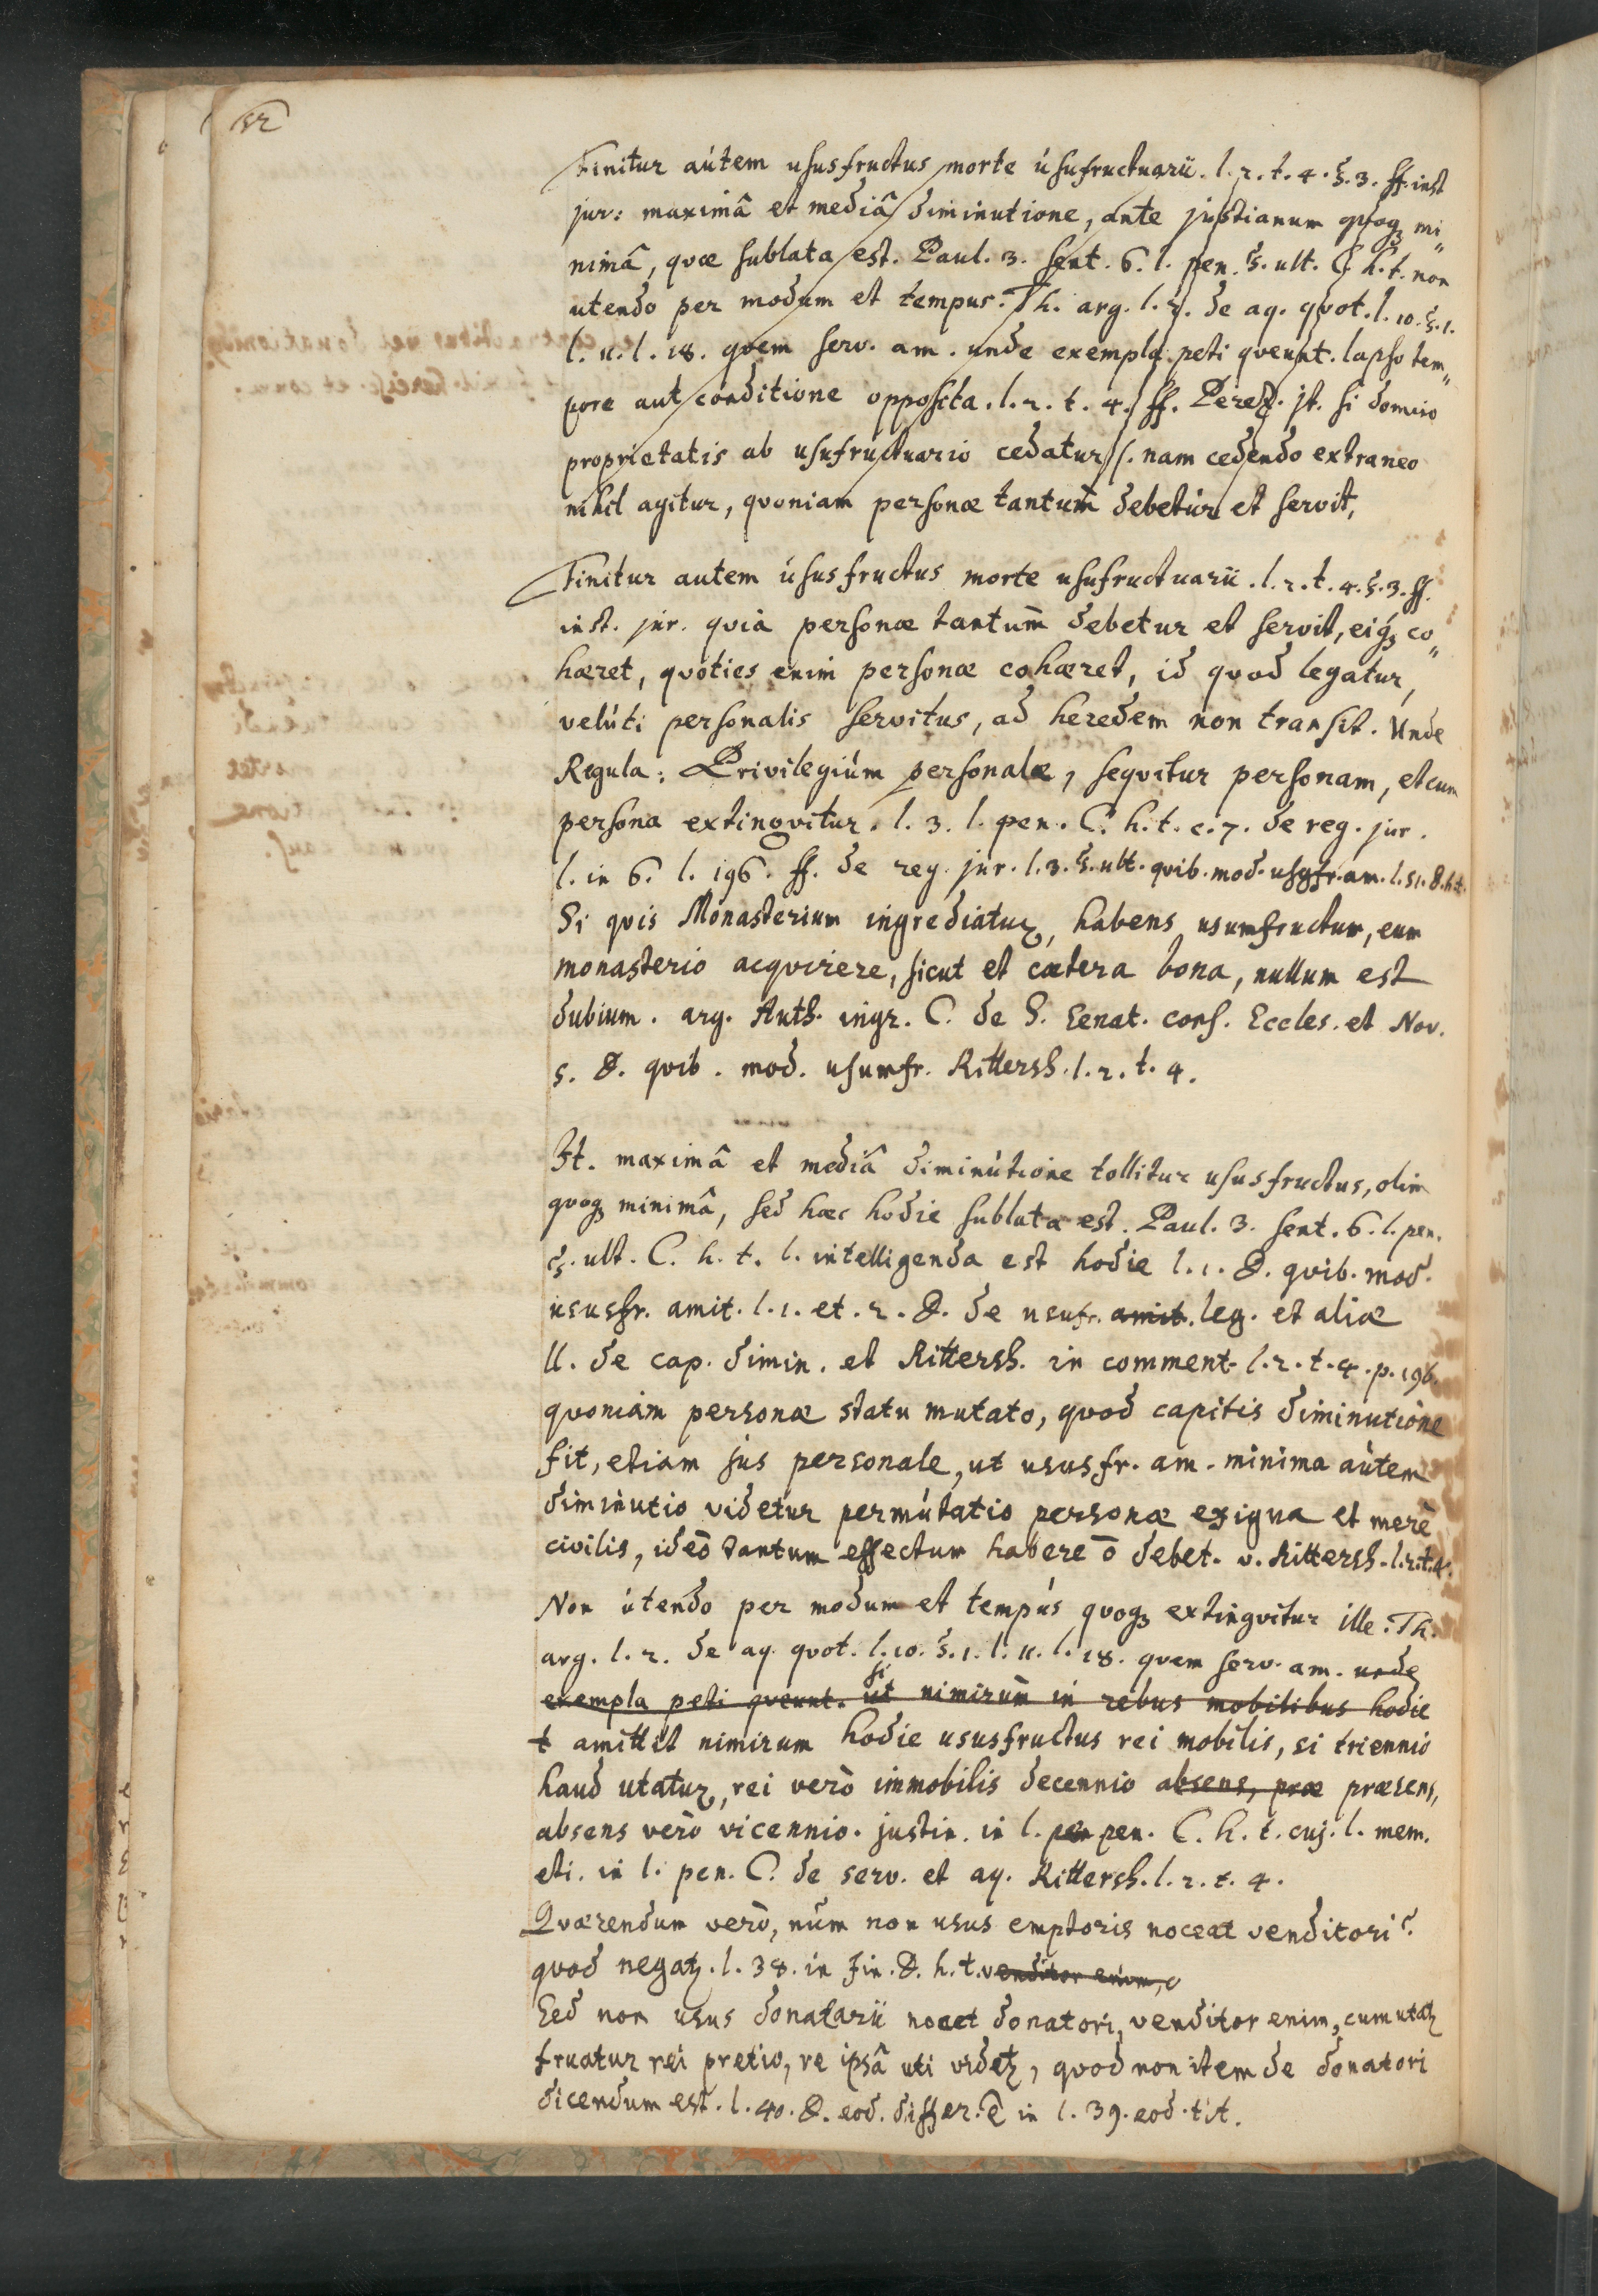 52
Finitur autem ususfructus morte usufructuarii. l. 2. t. 4. §. 3. ff. inst
jur: maximâ et mediâ diminutione, ante justianum quoqꝫ mi„
nimâ, quæ sublata est. Paul. 3. sent. 6. l. pen. §. ult. C. h. t. non
utendo per modum et tempus. Th. arg. l. 2. de aq. quot. l. 10. §. 1.
l. 11. l. 18. quem serv. am. unde exempla peti queunt. lapso tem„
pore aut conditione opposita. l. 2. t. 4. ff. Perez. jt. si domino
proprietatis ab usufructuario cedatur s. nam cedendo extraneo
nihil agitur, quoniam personæ tantum debetur et servit,
Finitur autem ususfructus morte usufructuarii. l. 2. t. 4. §. 3. ff.
inst. jur. quia personæ tantum debetur et servit, eiqꝫ co„
hæret, quoties enim personæ cohæret, id quod legatur,
veluti personalis servitus, ad heredem non transit. Unde
Regula: Privilegium personale, sequitur personam, et cum
persona extinguitur. l. 3. l. pen. C. h. t. c. 7. de reg. jur.
l. in 6. l. 196. ff. de reg. jur. l. 3. §. ult. quib. mod. usufr. am. l. 51. 8. h.t.
Si quis Monasterium ingrediatur, habens usumfructum, eum
monasterio acquirere, sicut et cætera bona, nullum est
dubium. arg. Auth. ingr. C. de S. Senat. cons. Eccles. et Nov.
5. D. quib. mod. usumfr. Rittersh. l. 2. t. 4.
It. maximâ et mediâ diminutione tollitur ususfructus, olim
quoqꝫ minimâ, sed hæc hodie sublata est. Paul. 3. sent. 6. l. pen.
§. ult. C. h. t. l. intelligenda est hodie l. 1. D. quib. mod.
ususfr. amit. l. 1. et. 2. D. de usufr. amit. leg. et aliæ
ll. de cap. dimin. et Rittersh. in comment. l. 2. t. 4. p. 196.
quoniam personæ statu mutato, quod capitis diminutione
fit, etiam jus personale, ut ususfr. am. minima autem
diminutio videtur permutatio personæ exigua et merè
civilis, ideò tantum effectum habere ō debet. v. Rittersh. l. 2. t. 4.
Non utendo per modum et tempus quoqꝫ extinguitur ille. Th.
arg. l. 2. de aq. quot. l. 10. §. 1. l. 11. l. 18. quem serv. am. unde
exempla peti queunt. ut si nimirum in rebus mobilibus hodie
t amittit nimirum hodie ususfructus rei mobilis, si triennio
haud utatur, rei verò immobilis decennio absens, præ præsens,
absens verò vicennio. justin. in l. pen pen. C. h. t. cuj. l. mem.
eti. in l. pen. C. de serv. et aq. Rittersh. l. 2. t. 4.
Quærendum verò, num non usus emptoris noceat venditori?
quod negatꝫ. l. 38. in fin. D. h. t. venditor enim,
Sed non usus donatarii nocet donatori, venditor enim, cum utatꝫ
fruatur rei pretio, re ipsâ uti videtꝫ, quod non item de donatori
dicendum est. l. 40. D. eod. differ. ē in l. 39. eod. tit.